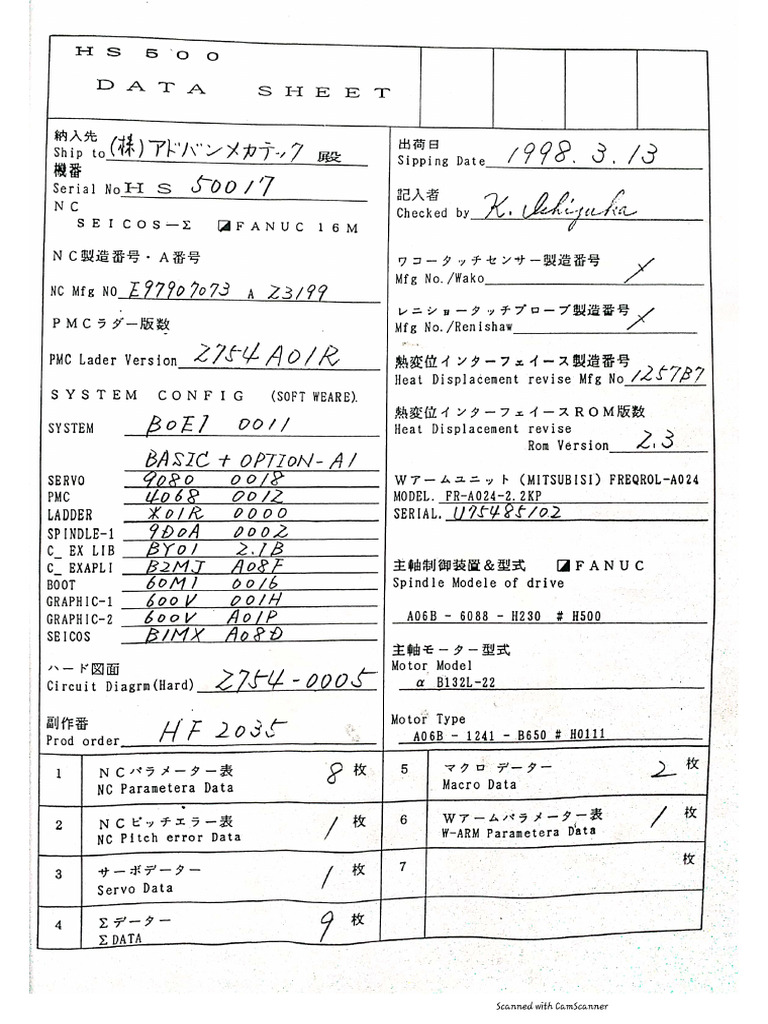 HS500
DATA SHEET
納入先
Ship to (株)アドバンメカテック 殿
機番
Serial No HS 50017
NC
SEICOS-Σ ◪FANUC 16M
NC製造番号・A番号
NC Mfg NO E97907073 A Z3199
PMCラダー版数
PMC Lader Version Z754A01R
SYSTEM CONFIG (SOFT WEARE).
SYSTEM B0E1 0011
BASIC + OPTION-A1
SERVO 9080 0018
PMC 4068 0012
LADDER X01R 0000
SPINDLE-1 9D0A 0002
C_ EX LIB BY01 2.1B
C_ EXAPLI B2MJ A08F
BOOT 60M1 0016
GRAPHIC-1 600V 001H
GRAPHIC-2 600V A01P
SEICOS B1MX A08D
ハード図面
Circuit Diagrm(Hard) Z754-0005
副作番
Prod order HF2035
出荷日
Sipping Date 1998.3.13
記入者
Checked by K. Ishizuka
ワコータッチセンサー製造番号
Mfg No./Wako /
レニショータッチプローブ製造番号
Mfg No./Renishaw /
熱変位インターフェイース製造番号
Heat Displacement revise Mfg No 1257B7
熱変位インターフェイースROM版数
Heat Displacement revise
Rom Version 2.3
Wアームユニット (MITSUBISI) FREQROL-A024
MODEL. FR-A024-2.2KP
SERIAL. U75485102
主軸制御装置&型式 ◪FANUC
Spindle Modele of drive
A06B - 6088 - H230 # H500
主軸モーター型式
Motor Model
α B132L-22
Motor Type
A06B - 1241 - B650 # H0111
1 NCパラメーター表 8 枚
NC Parametera Data
2 NCピッチエラー表 1 枚
NC Pitch error Data
3 サーボデーター 1 枚
Servo Data
4 Σデーター 9 枚
ΣDATA
5 マクロ データー 2 枚
Macro Data
6 Wアームパラメーター表 1 枚
W-ARM Parametera Data
7 枚
Scanned with CamScanner